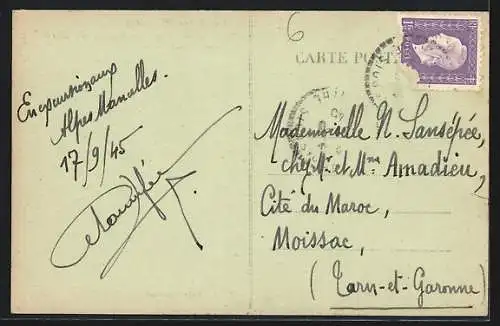 6
CARTE POSTALE
En excursion aux
Alpes Manalles.
17/9/45
Mademoiselle N. Sansépée,
chez Mr et Mme Amadieu,
Cité du Maroc,
Moissac,
(Tarn-et-Garonne)